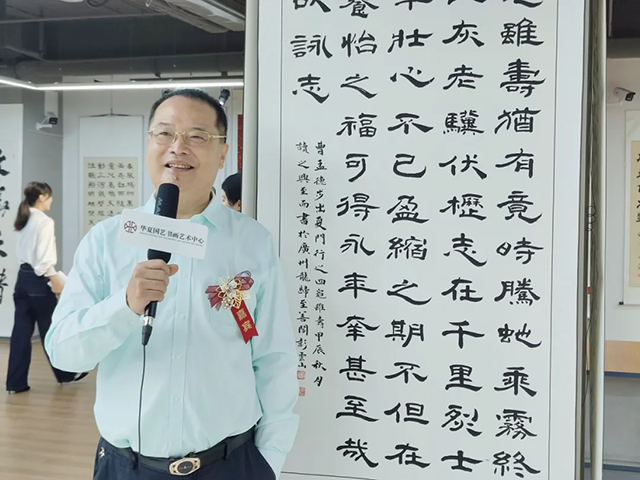 雖壽猶有竟時騰虵乘霧終
灰老驥伏櫪志在千里烈士
年壯心不已盈縮之期不但在
養怡之福可得永年幸甚至哉
以詠志
曹孟德步出夏門行之四龜雖壽甲辰秋月
讀之興至而書於廣州龍歸至善閣彭雲山
华夏国艺书画艺术中心
嘉宾